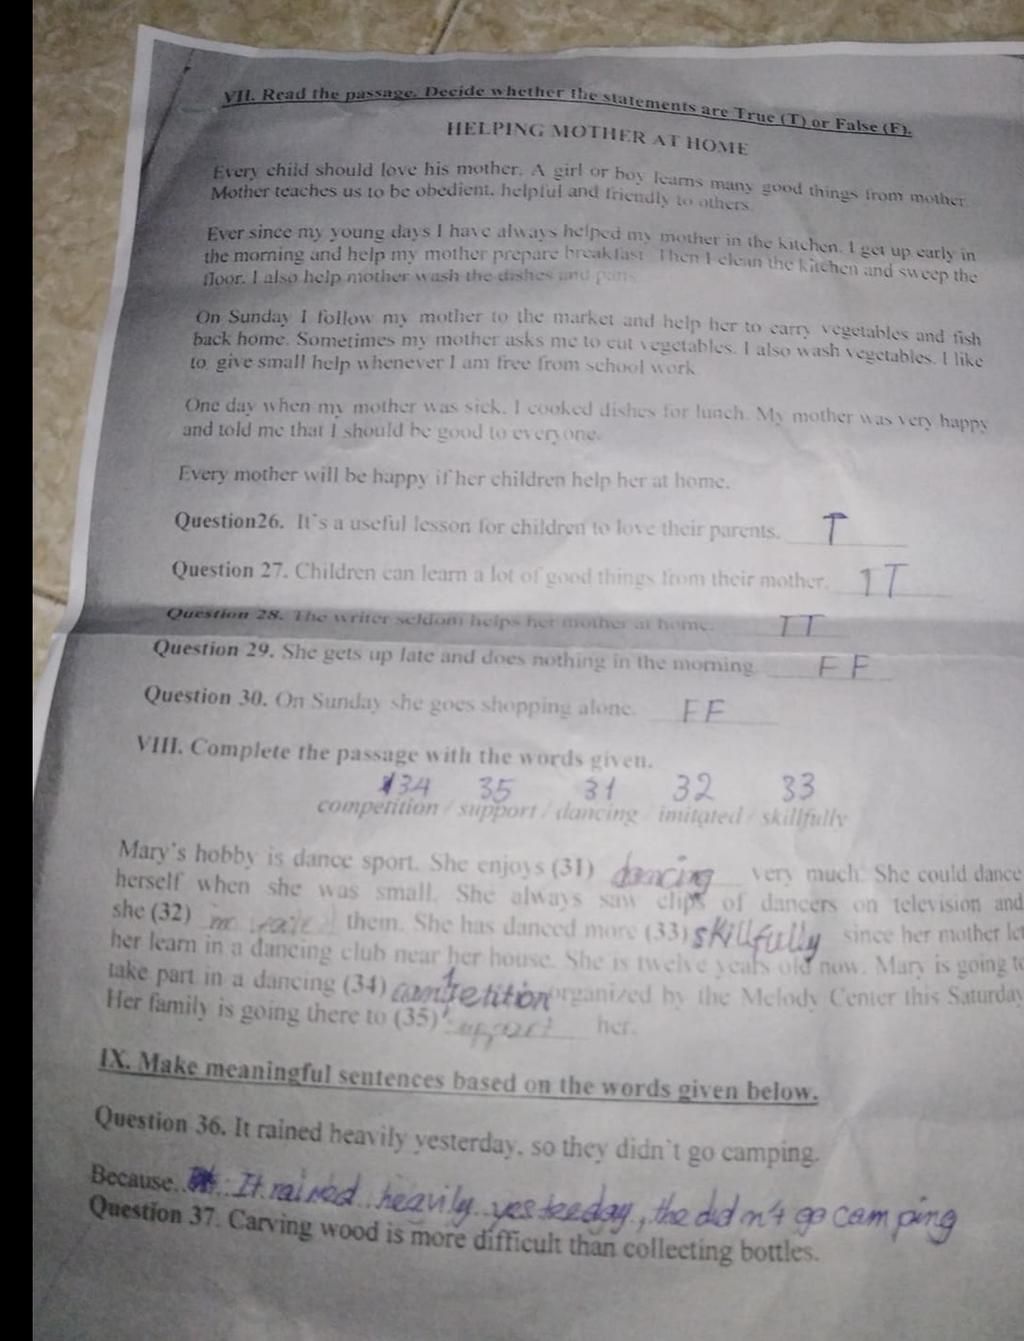 VII. Read the passage. Decide whether the statements are True (T) or False (F).
HELPING MOTHER AT HOME
Every child should love his mother. A girl or boy learns many good things from mother.
Mother teaches us to be obedient, helpful and friendly to others.
Ever since my young days I have always helped my mother in the kitchen. I get up early in
the morning and help my mother prepare breakfast. Then I clean the kitchen and sweep the
floor. I also help mother wash the dishes and pans.
On Sunday I follow my mother to the market and help her to carry vegetables and fish
back home. Sometimes my mother asks me to cut vegetables. I also wash vegetables. I like
to give small help whenever I am free from school work.
One day when my mother was sick, I cooked dishes for lunch. My mother was very happy
and told me that I should be good to everyone.
Every mother will be happy if her children help her at home.
Question26. It's a useful lesson for children to love their parents. T
Question 27. Children can learn a lot of good things from their mother. 1T
Question 28. The writer seldom helps her mother at home. TT
Question 29. She gets up late and does nothing in the morning. FF
Question 30. On Sunday she goes shopping alone. FF
VIII. Complete the passage with the words given.
34 35 31 32 33
competition / support / dancing / imitated / skillfully
Mary's hobby is dance sport. She enjoys (31) dancing very much. She could dance
herself when she was small. She always saw clips of dancers on television and
she (32) them. She has danced more (33) skillfully since her mother let
her learn in a dancing club near her house. She is twelve years old now. Mary is going to
take part in a dancing (34) competition organized by the Melody Center this Saturday
Her family is going there to (35) support her.
IX. Make meaningful sentences based on the words given below.
Question 36. It rained heavily yesterday, so they didn't go camping.
Because It rained heavily yesteeday, the did n't go camping
Question 37. Carving wood is more difficult than collecting bottles.